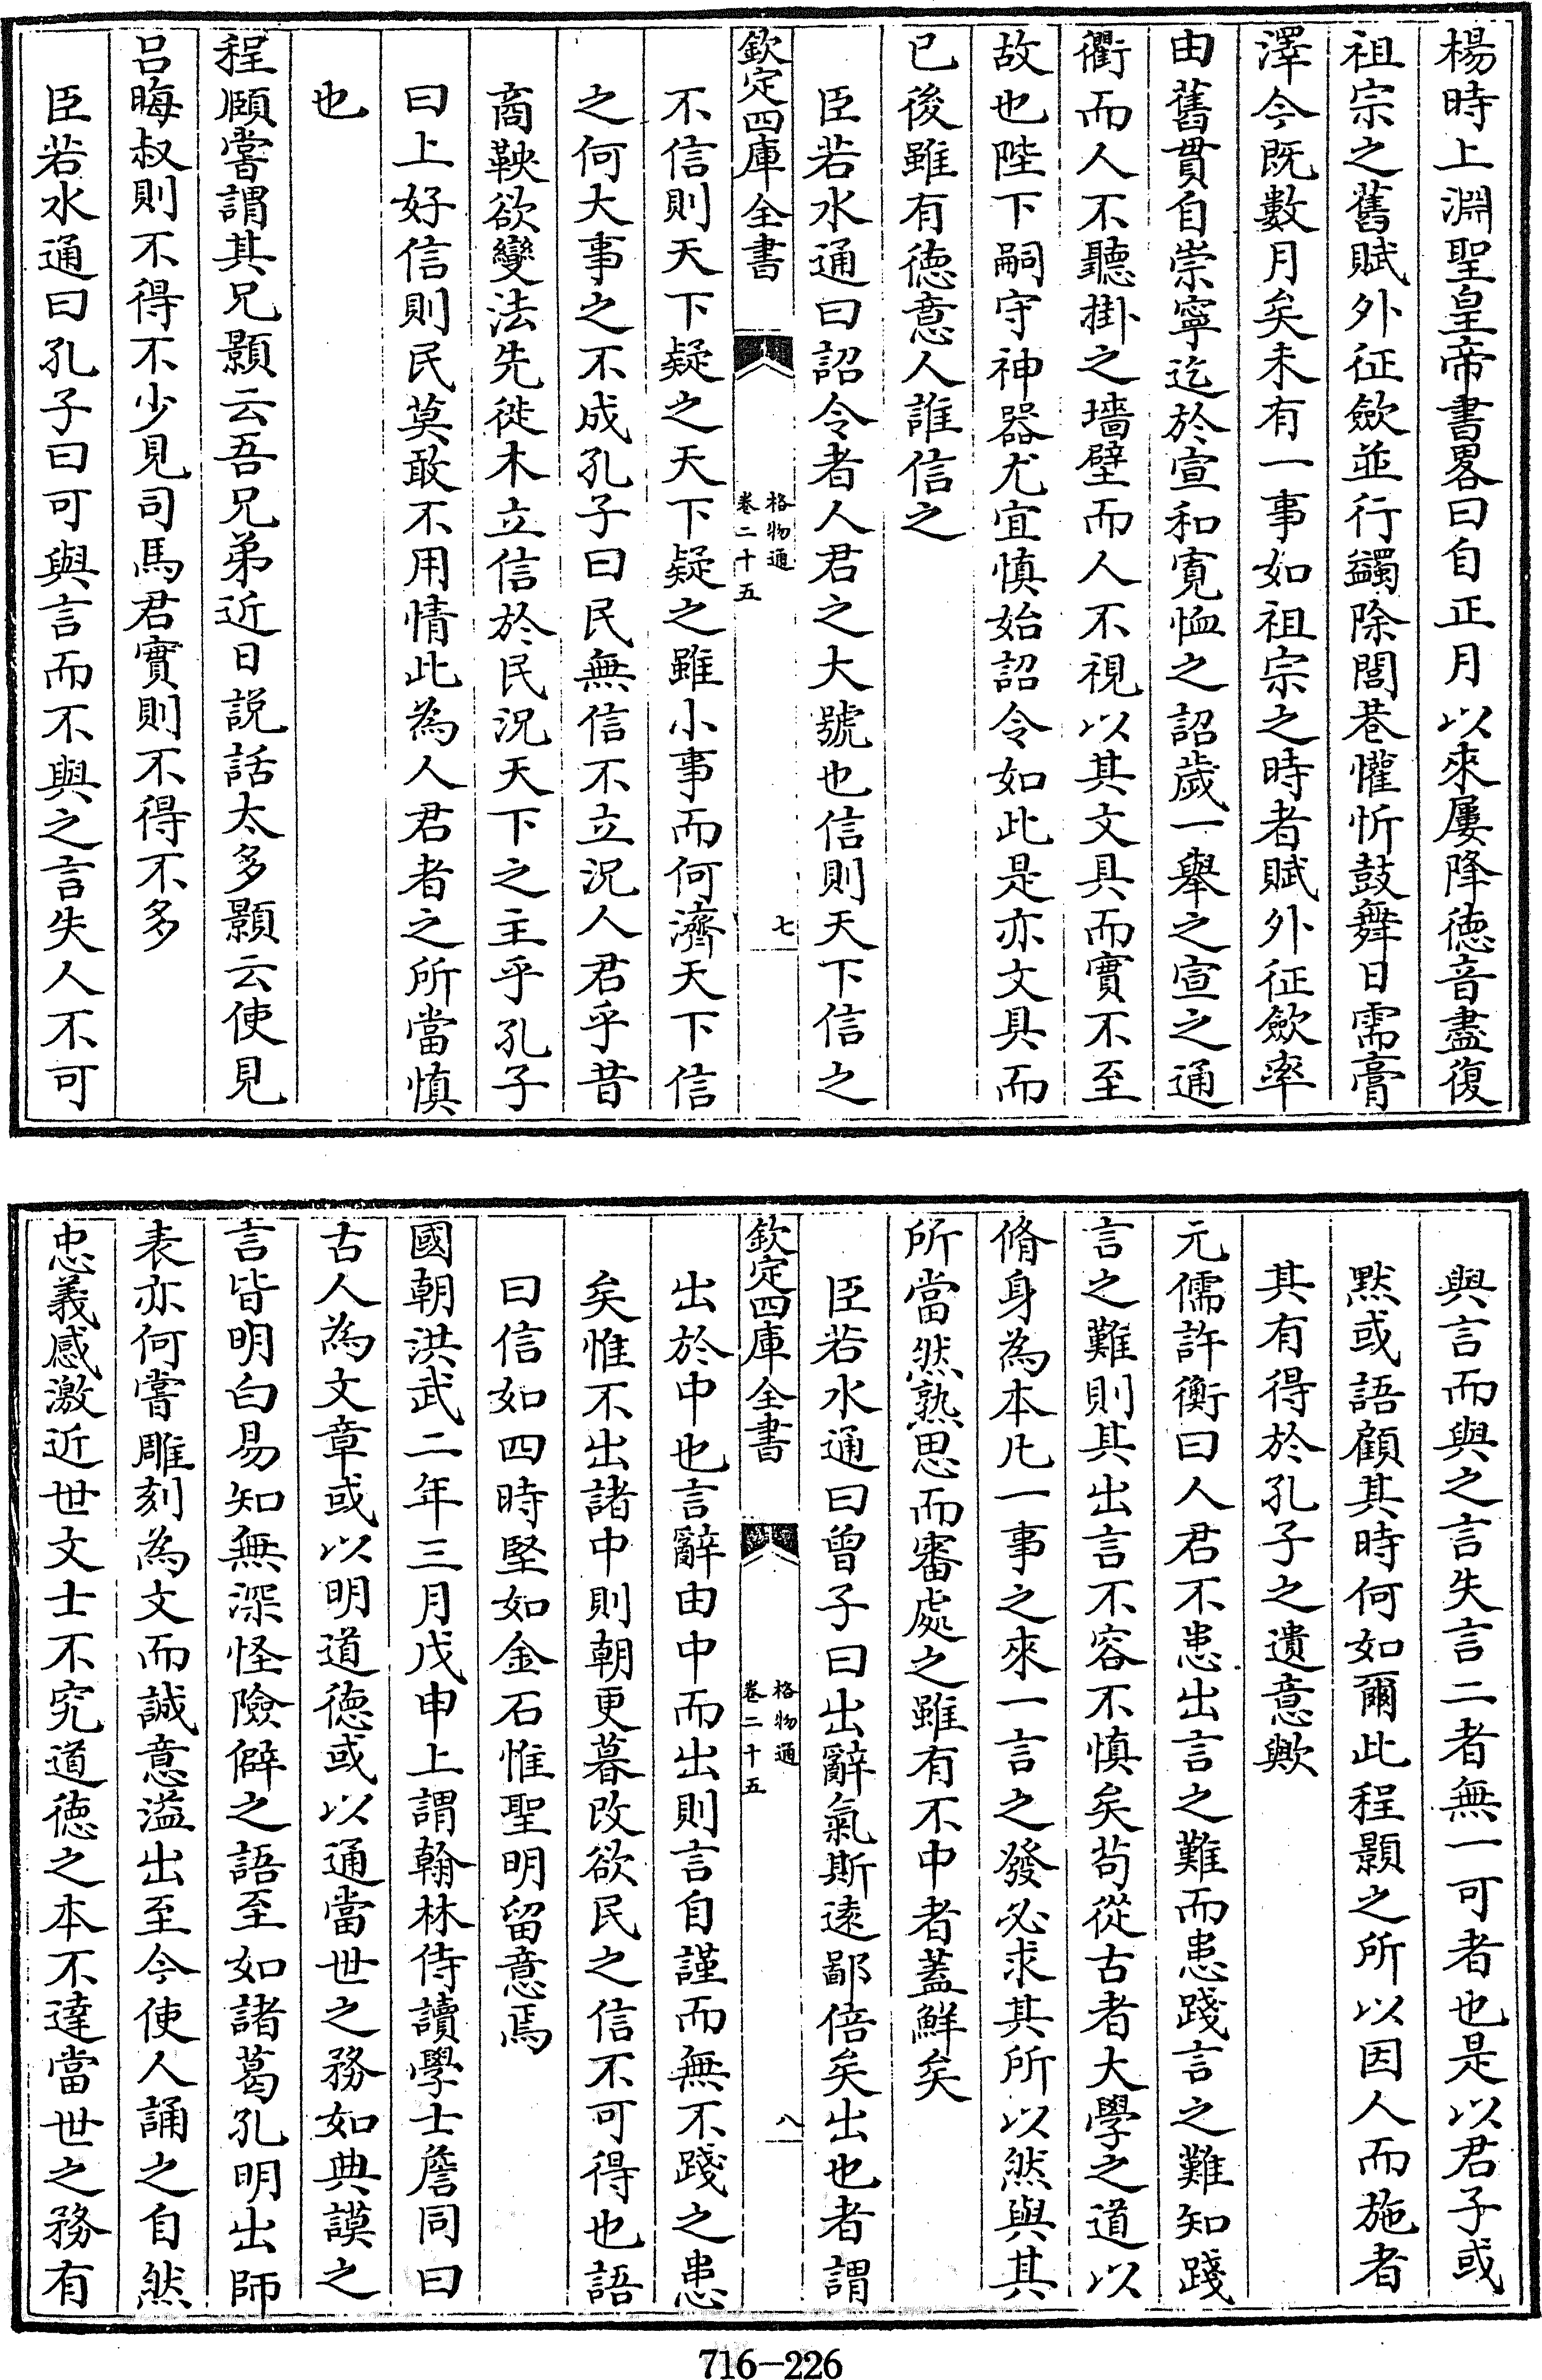 楊時上淵聖皇帝書畧曰自正月以來屢降德音盡復
祖宗之舊賦外征歛並行蠲除閭巷懽忻鼓舞日需膏
澤今既數月矣未有一事如祖宗之時者賦外征歛率
由舊貫自崇寧迄於宣和寛恤之詔歲一舉之宣之通
衢而人不聽掛之墻壁而人不視以其文具而實不至
故也陛下嗣守神器尤宜慎始詔令如此是亦文具而
已後雖有德意人誰信之
臣若水通曰詔令者人君之大號也信則天下信之
欽定四庫全書
格物通
卷二十五
七
不信則天下疑之天下疑之雖小事而何濟天下信
之何大事之不成孔子曰民無信不立況人君乎昔
商鞅欲變法先徙木立信於民況天下之主乎孔子
曰上好信則民莫敢不用情此為人君者之所當慎
也
程頤嘗謂其兄顥云吾兄弟近日說話太多顥云使見
呂晦叔則不得不少見司馬君實則不得不多
臣若水通曰孔子曰可與言而不與之言失人不可
與言而與之言失言二者無一可者也是以君子或
黙或語顧其時何如爾此程顥之所以因人而施者
其有得於孔子之遺意歟
元儒許衡曰人君不患出言之難而患踐言之難知踐
言之難則其出言不容不慎矣苟從古者大學之道以
脩身為本凡一事之來一言之發必求其所以然與其
所當然熟思而審處之雖有不中者蓋鮮矣
臣若水通曰曾子曰出辭氣斯遠鄙倍矣出也者謂
欽定四庫全書
格物通
卷二十五
八
出於中也言辭由中而出則言自謹而無不踐之患
矣惟不出諸中則朝更暮改欲民之信不可得也語
曰信如四時堅如金石惟聖明留意焉
國朝洪武二年三月戊申上謂翰林侍讀學士詹同曰
古人為文章或以明道德或以通當世之務如典謨之
言皆明白易知無深怪險僻之語至如諸葛孔明出師
表亦何嘗雕刻為文而誠意溢出至今使人誦之自然
忠義感激近世文士不究道德之本不達當世之務有
716-226